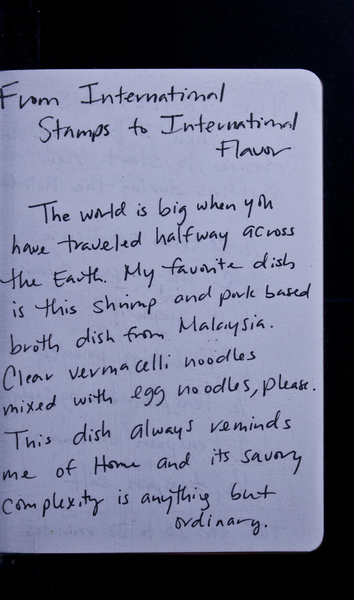 From International
Stamps to International
Flavor
The world is big when you
have traveled halfway across
the Earth. My favorite dish
is this shrimp and pork based
broth dish from Malaysia.
Clear vermacelli noodles
mixed with egg noodles, please.
This dish always reminds
me of Home and its savory
complexity is anything but
ordinary.